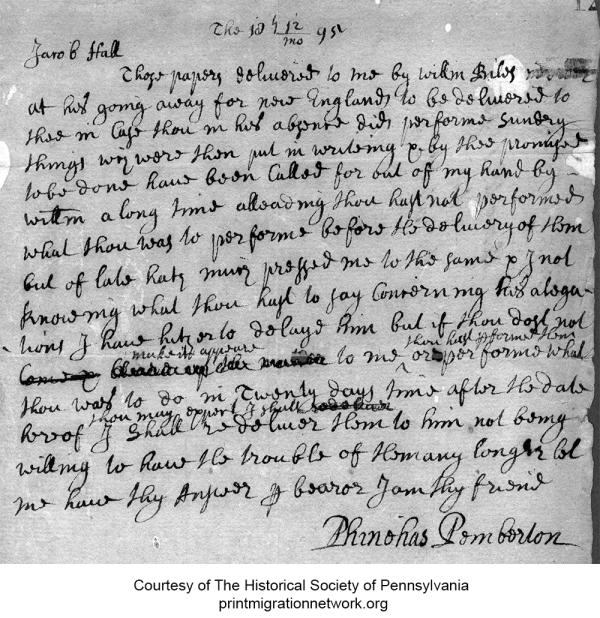 The 10th 12/mo 95
Jacob Hall
Those papers delivered to me by willm Biles
at his going away for new England to be delivered to
thee in Case thou in his absence did performe Sundry
things wch were then put in writeing & by thee promised
to be done have been Called for out of my hand by
willm a long time alleadging thou hast not performed
what thou was to performe before the delivery of them
but of late hath much pressed me to the same & I not
knowing what thou hast to say Concerning his alega-
tions I have hitherto delayd him but if thou dost not
make it appeare to me thou hast performed them or performe what
thou was to do in Twenty days time after the date
hereof thou may expect I shall I Shall redeliver them to him not being
willing to have the trouble of them any longer let
me have thy Answer p bearer I am thy friend
Phinehas Pemberton
Courtesy of The Historical Society of Pennsylvania
printmigrationnetwork.org